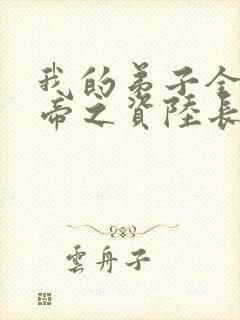 我的弟子全
帝之資陸長
雲舟子